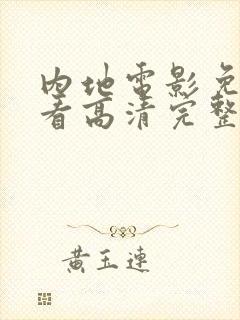 内地电影免
看高清完整
黄玉连